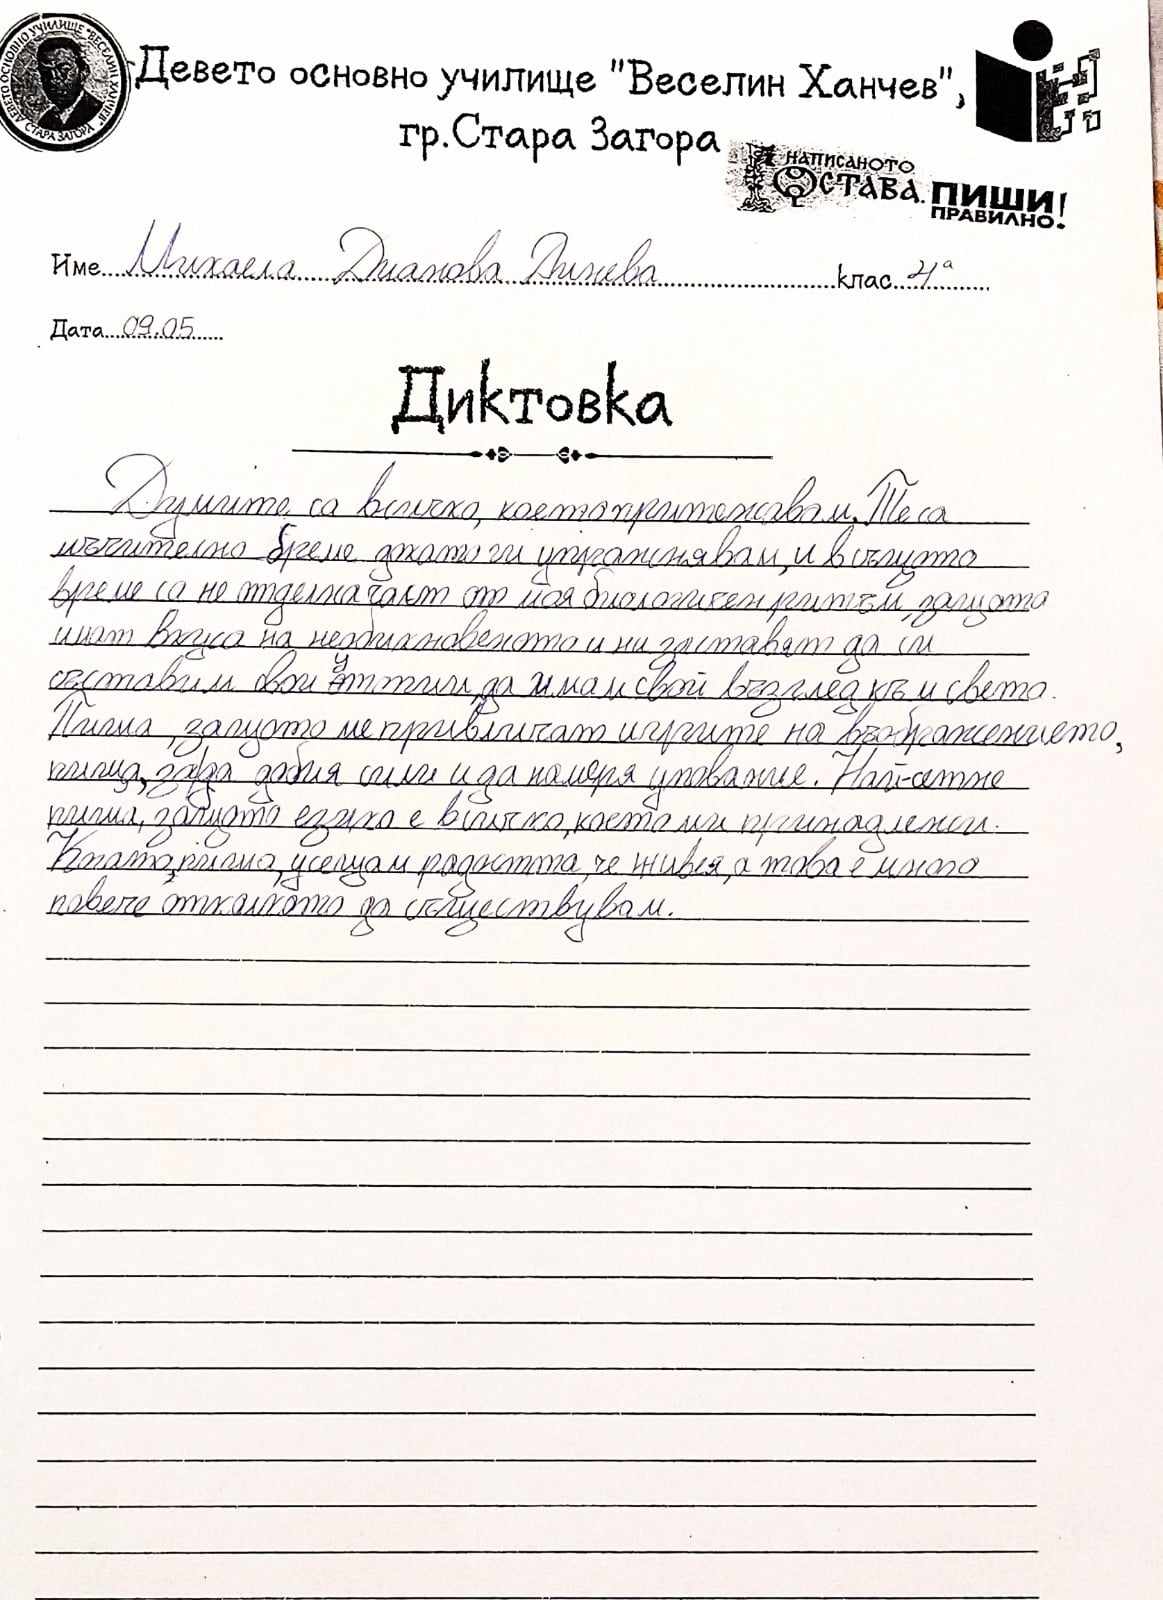 ДЕВЕТО ОСНОВНО УЧИЛИЩЕ "ВЕСЕЛИН ХАНЧЕВ" СТАРА ЗАГОРА
Девето основно училище "Веселин Ханчев",
гр.Стара Загора
НАПИСАНОТО
ОСТАВА. ПИШИ
ПРАВИЛНО!
Име Михаела Дианова Динева клас 4а
Дата 09.05
Диктовка
Думите са всичко, което притежавам. Те са
мъчително бреме докато ги упражнявам, и в същото
време са не отделна част от моя биологичен ритъм, защото
имат вкуса на необикновеното и ни заставят да си
съставим свои, да имам свой възглед към света.
Пиша, защото ме привличат игрите на въображението,
пиша, за да добия сили и да намеря упование. Най-сетне
пиша, защото езика е всичко, което ми принадлежи.
Когато, пиша, усещам радостта, че живея, а това е много
повече отколкото да съществувам.